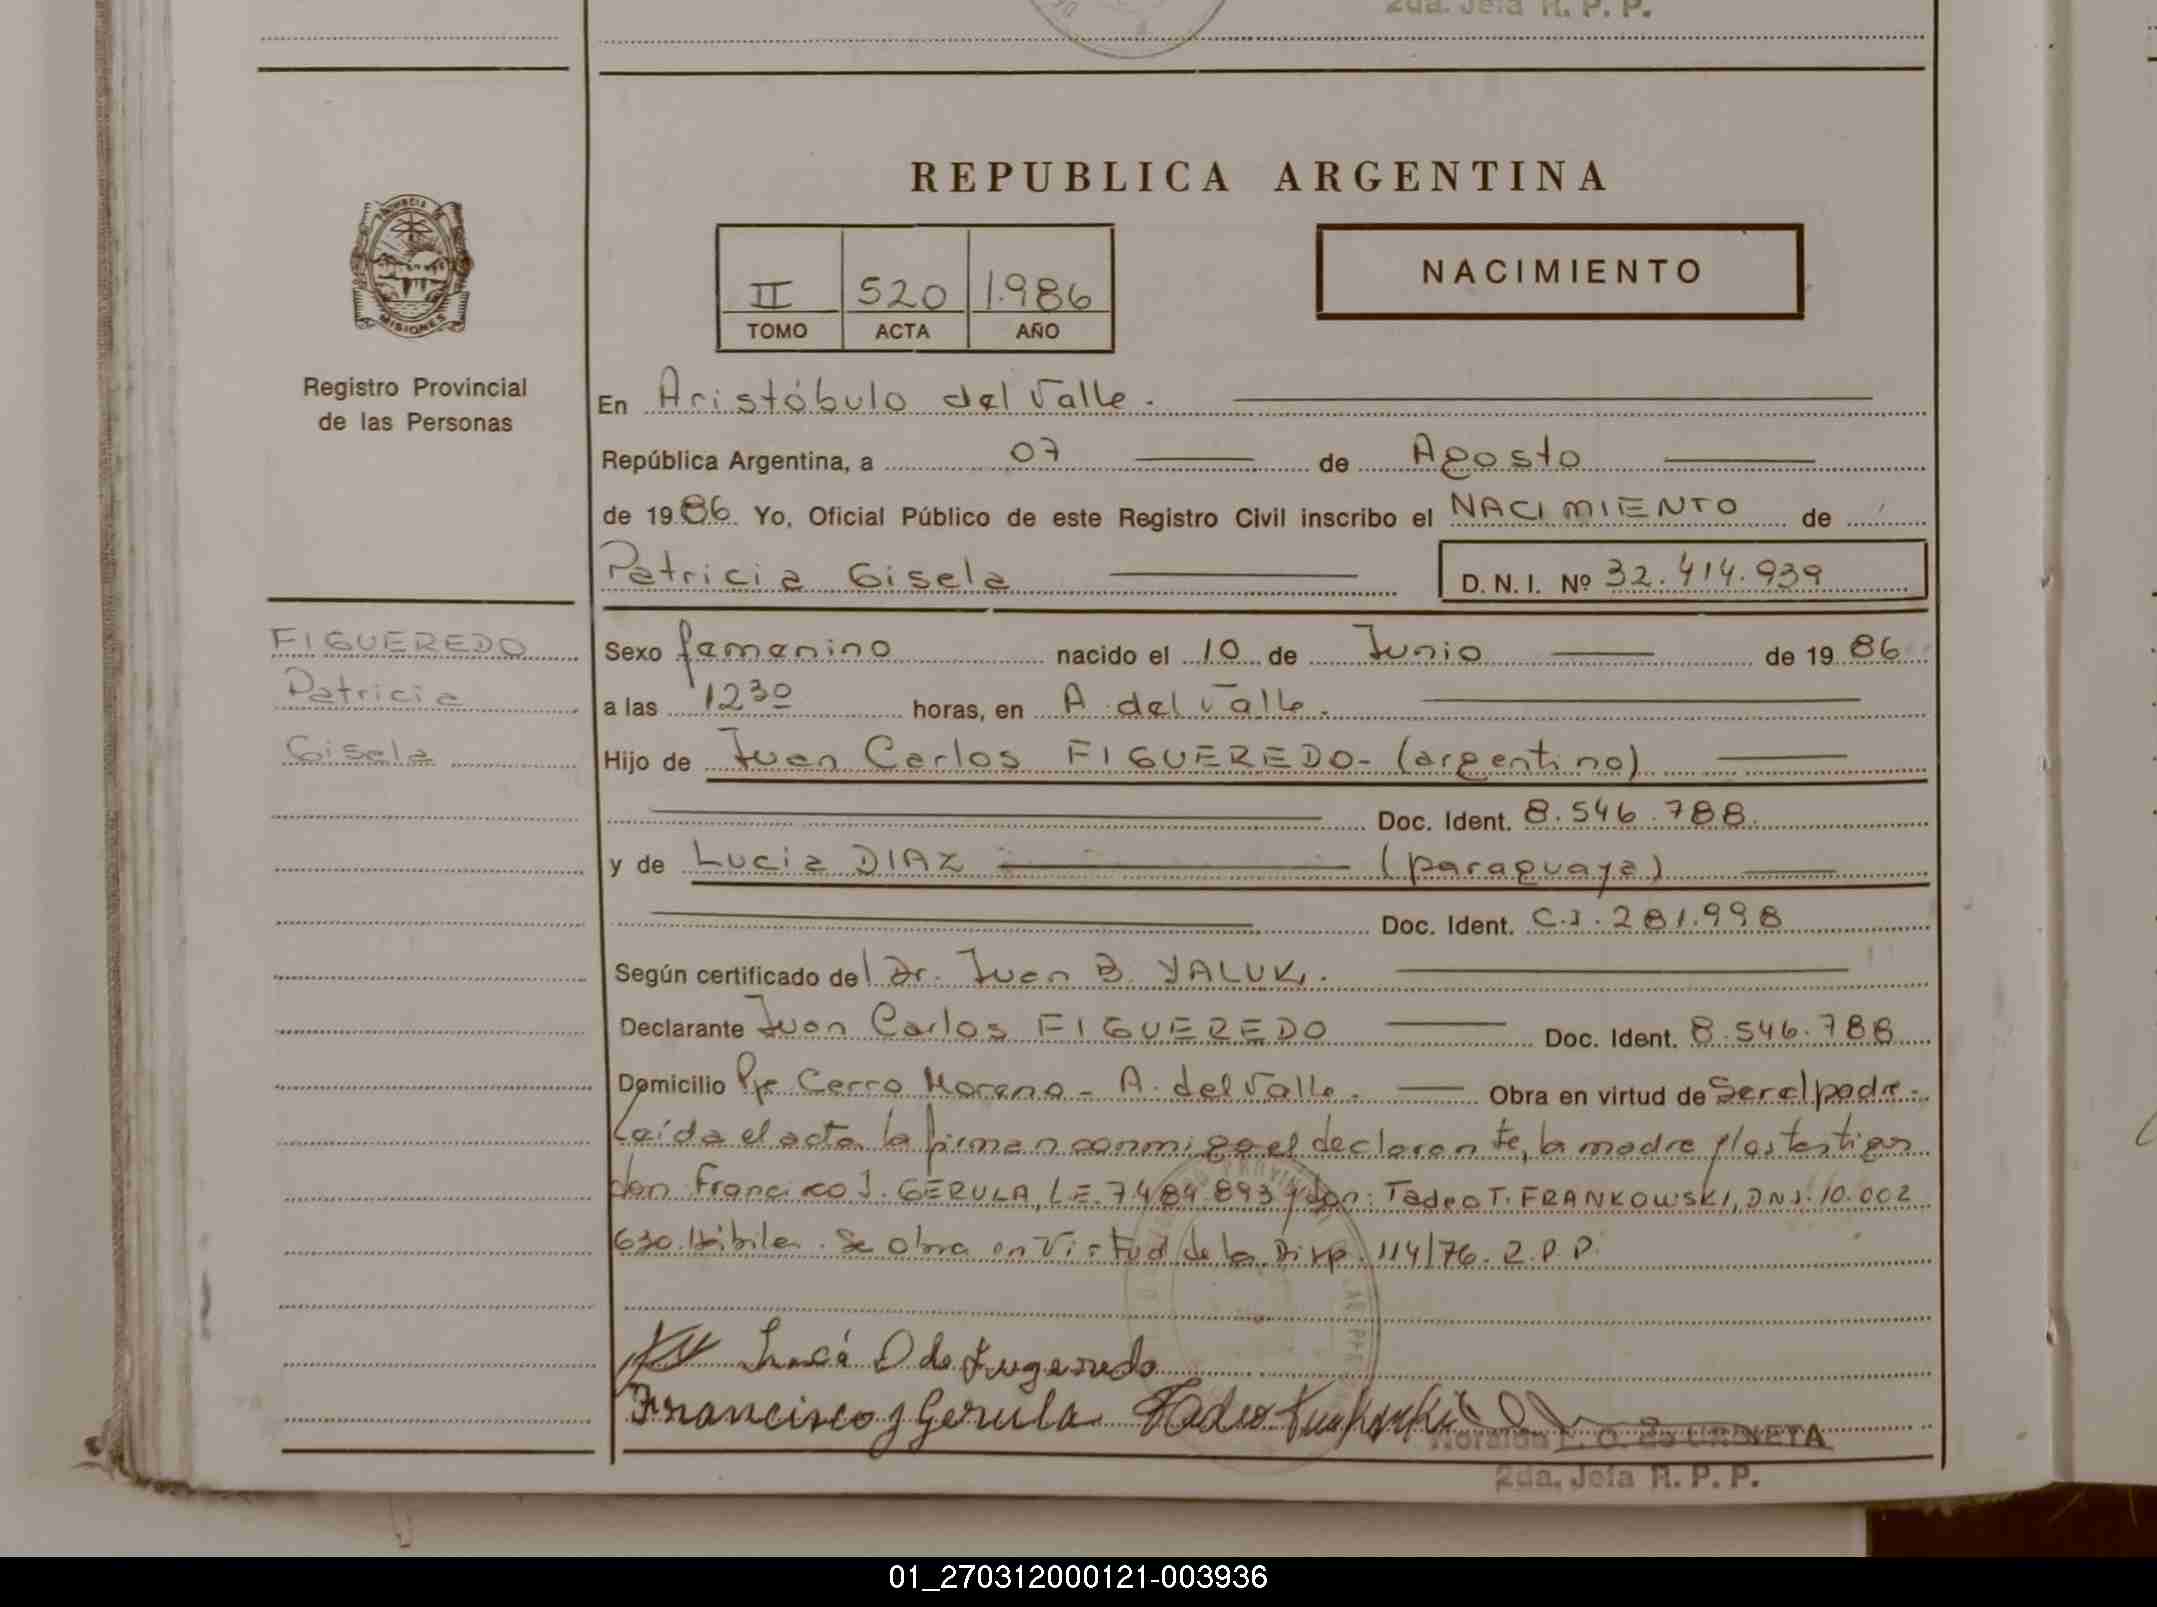 2da. Jefa R. P. P.
REPUBLICA ARGENTINA
PROVINCIA DE
MISIONES
II 520 1.986
TOMO ACTA AÑO
NACIMIENTO
Registro Provincial
de las Personas
En Aristóbulo del Valle.
República Argentina, a 07 de Agosto
de 1986. Yo, Oficial Público de este Registro Civil inscribo el NACIMIENTO de
Patricia Gisela D.N.I. Nº 32.414.939
FIGUEREDO
Patricia
Gisela
Sexo femenino nacido el 10 de Junio de 1986
a las 12 30 horas, en A. del Valle.
Hijo de Juan Carlos FIGUEREDO- (argentino)
Doc. Ident. 8.546.788.
y de Lucia DIAZ (paraguaya)
Doc. Ident. C.I. 281.998
Según certificado del Dr. Juan B. YALUK.
Declarante Juan Carlos FIGUEREDO Doc. Ident. 8.546.788
Domicilio Pje Cerro Moreno - A. del Valle. Obra en virtud de Ser el padre.-
Leída el acta la firman conmigo el declarante, la madre y los testigos
don Francisco J. GERULA, L.E. 7.484.893 y don: Tadeo T. FRANKOWSKI, DNI. 10.002
630. Hábiles. Se obra en Virtud de la Disp. 114/76. R.P.P.
Lucía D de Figueredo
Francisco J Gerula Tadeo Frankowski
E. O. de URBIETA
2da. Jefa R. P. P.
01_270312000121-003936